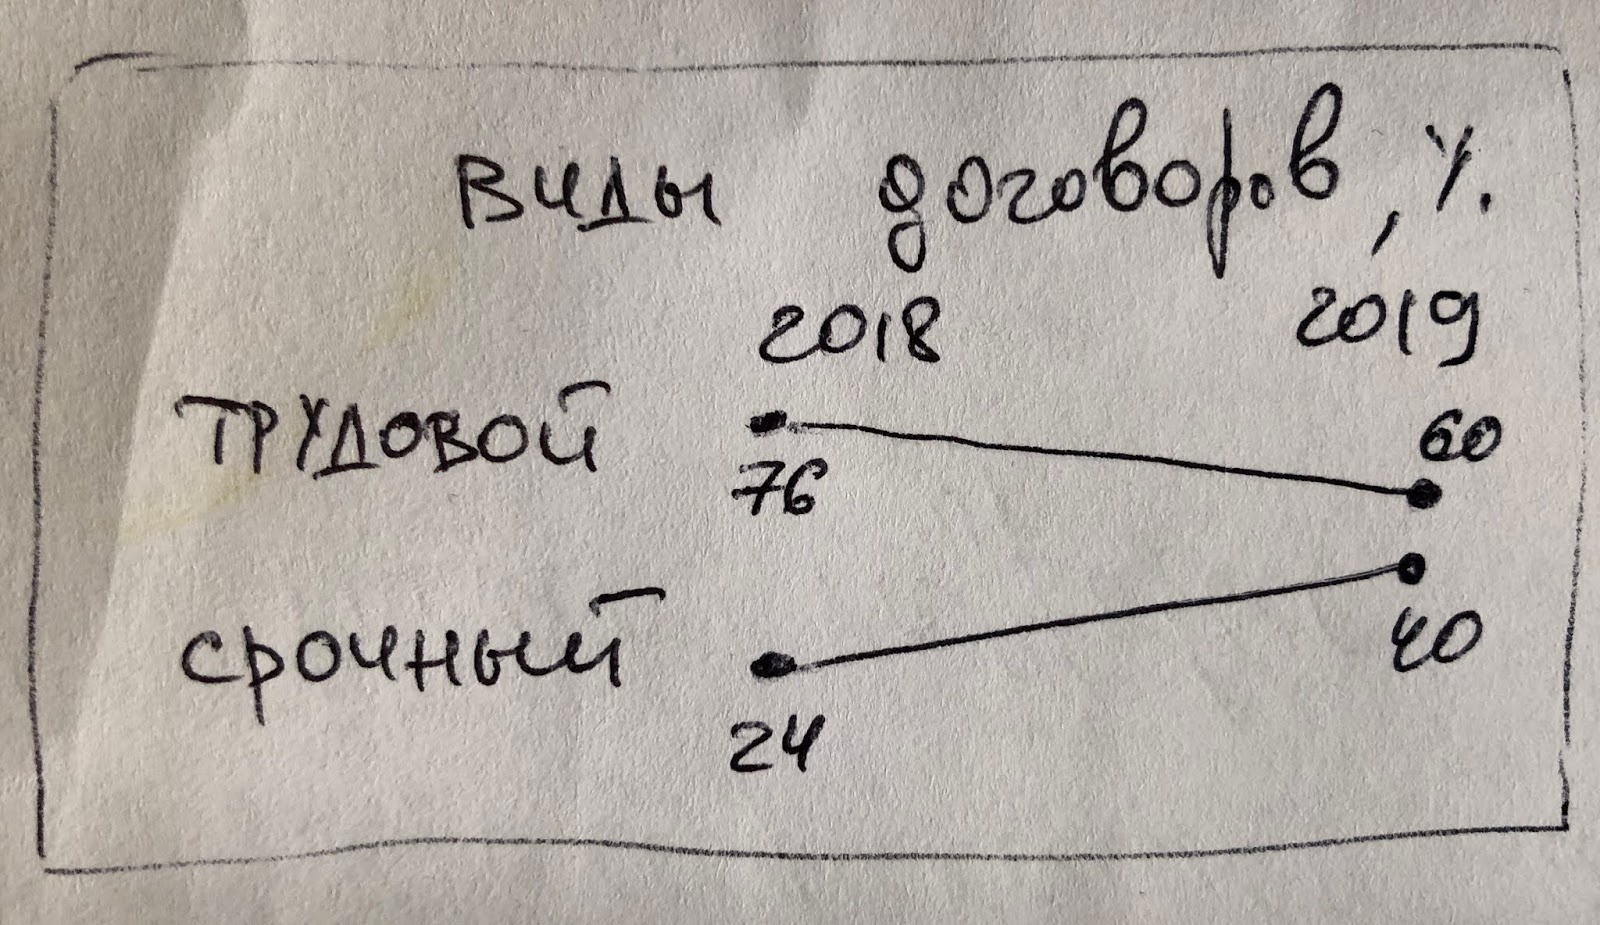 виды договоров, %
2018 2019
трудовой
76 60
срочный
24 40